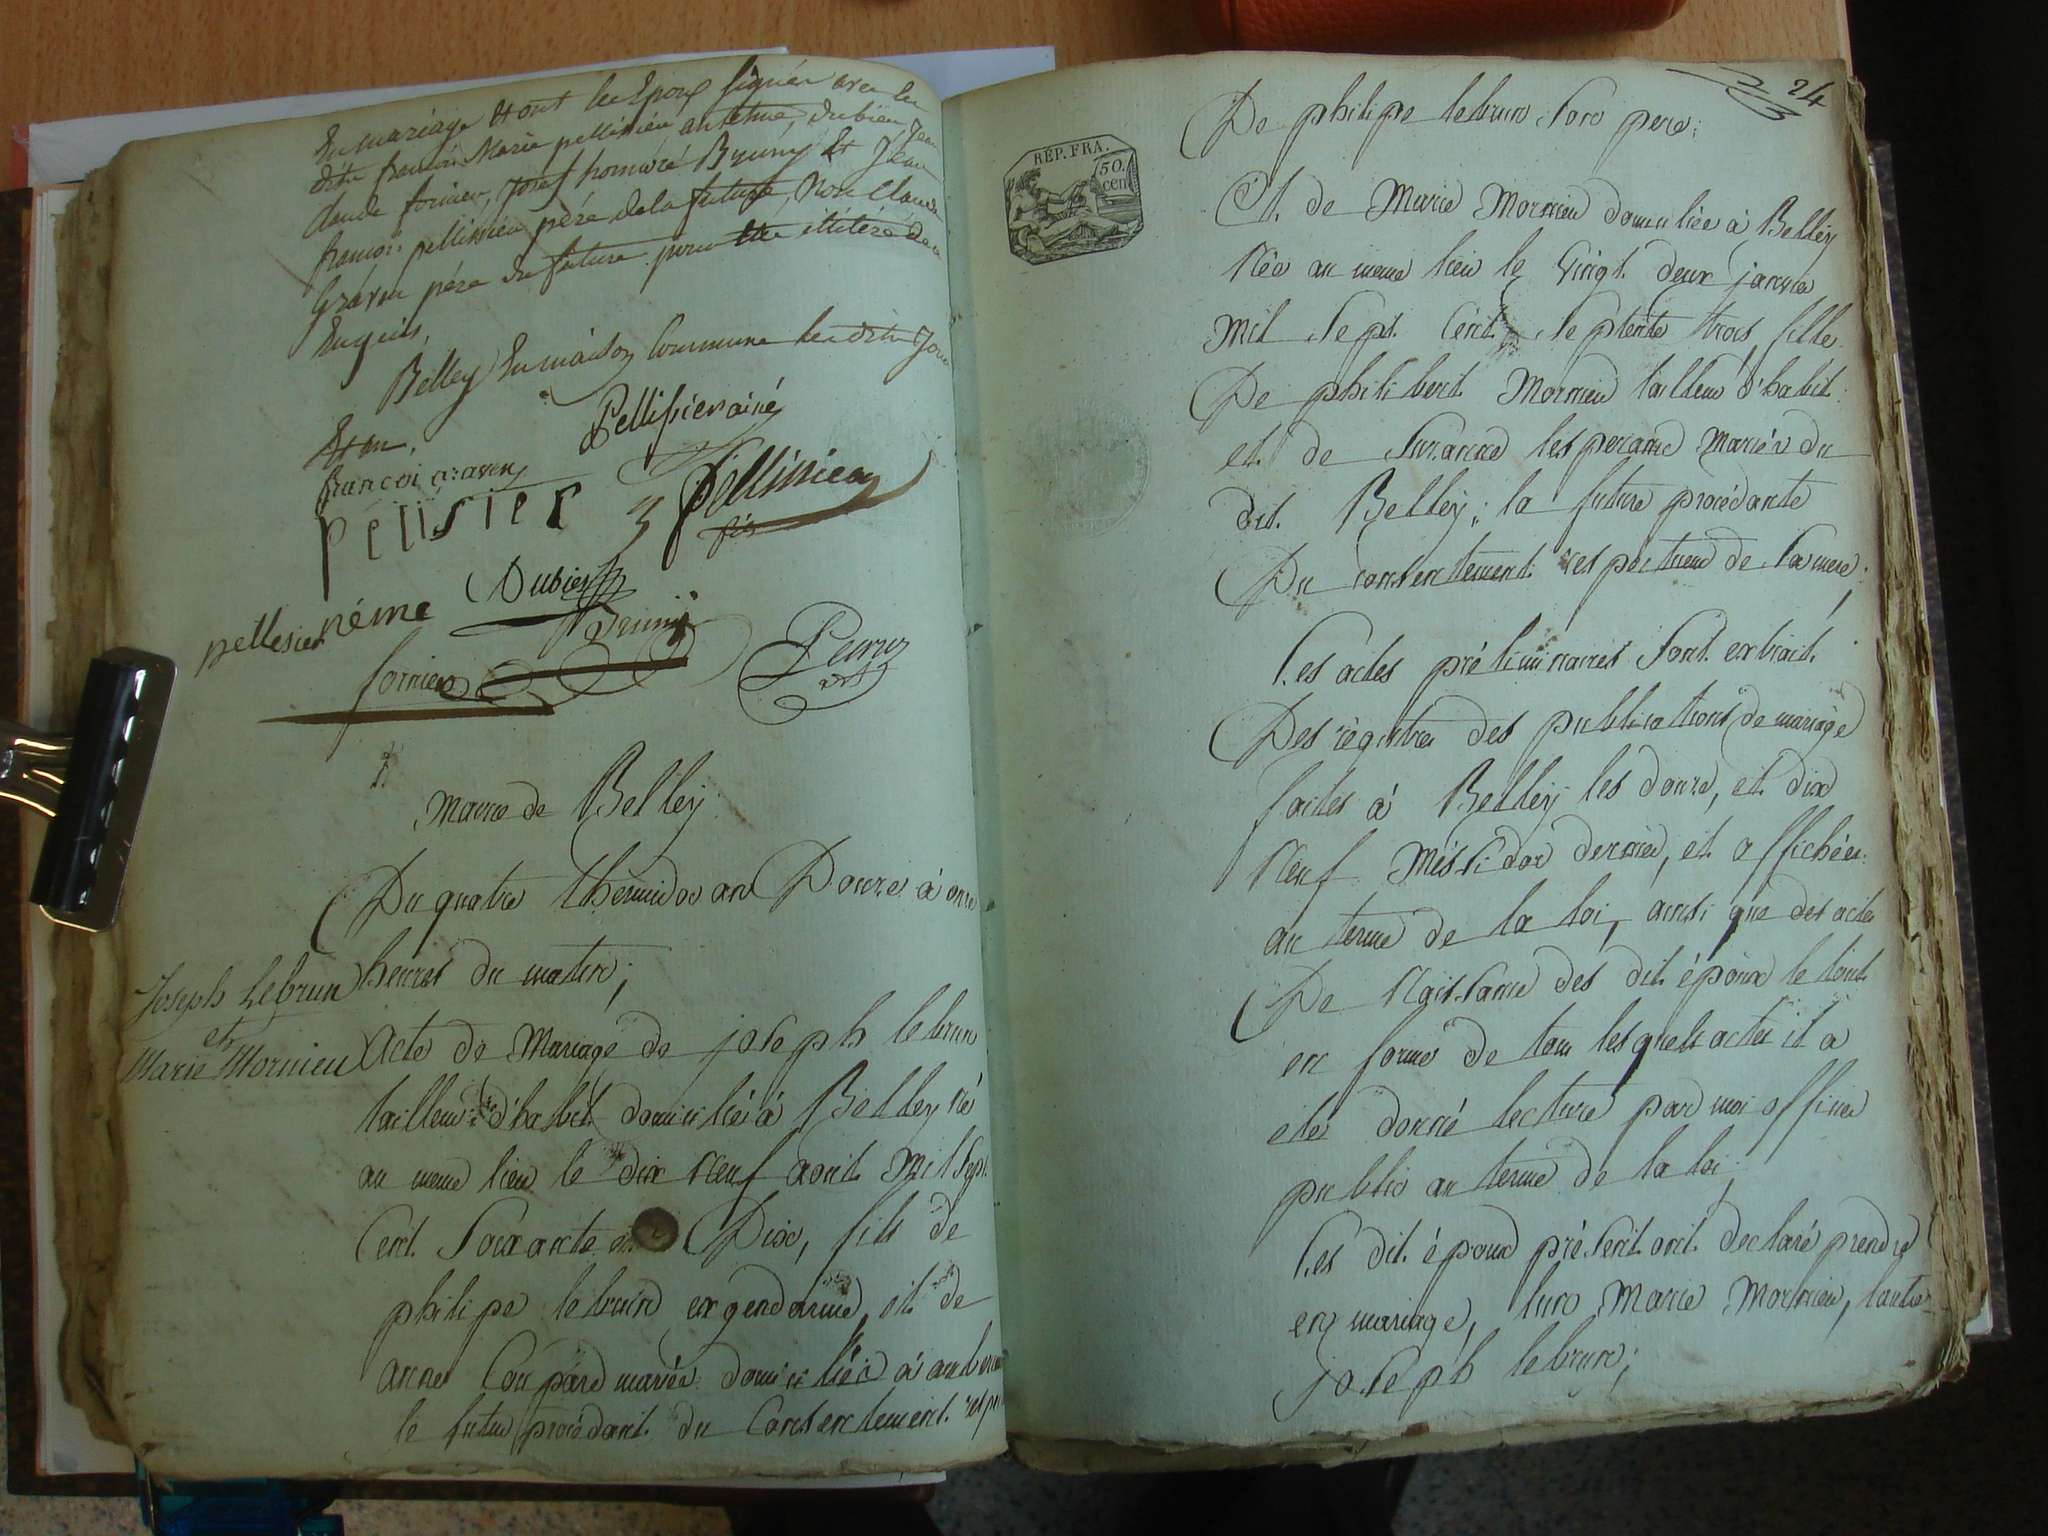 En mariage Et ont les Epoux signés avec les
dits françois Marie pellissier antelme, Dubien, Jean
claude fornier, Josef honnoré Bruny Et Jean
françois pellissier père de la future, Non Claude
Graven père du futur pour être illitéré de ce
Enquis,
Belley En maison Commune les dits Jour
Et an,
Pellissier ainé
françoi graven
pélisier
Pellissier
fils
Dubien
pellesier néme
fornier
Mairie de Belley
Du quatre thermidor an Douze à onze
heures du matin;
Joseph Lebrun
et
Marie Mornieu
Acte de Mariage de joseph lebrun
tailleur d'habit domicilié à Belley né
au meme lieu le dix neuf aout Mil Sept
Cent Soixante et Dix, fils de
philipe lebrun ex gendarme, et de
anne Coupard mariés domiciliés à
le futur procédant du Consentement
24
RÉP. FRA.
50.
cen
De philipe lebrun Son pere;
Et de Marie Mornieu domiciliée à Belley
Née au meme lieu le Vingt deux janvier
Mil Sept Cent Septente trois, fille
De philibert Mornieu tailleur d'habit
et de Suzanne lesperance Mariés du
dit Belley; la future procédante
Du consentement respectueux de Sa mere;
Les actes préliminaires Sont extrait
Des régistres des publications de mariage
faites à Belley les douze, et dix
Neuf Messidor dernier, et affichées
au terme de la loi, ainsi que des actes
De Naissance des dit époux le tout
en forme de tous lesquels actes il a
etés donné lecture par moi officier
public au terme de la loi;
Les dit époux présent ont declaré prendre
en mariage, lun Marie Mornieu, lautre
joseph lebrun;